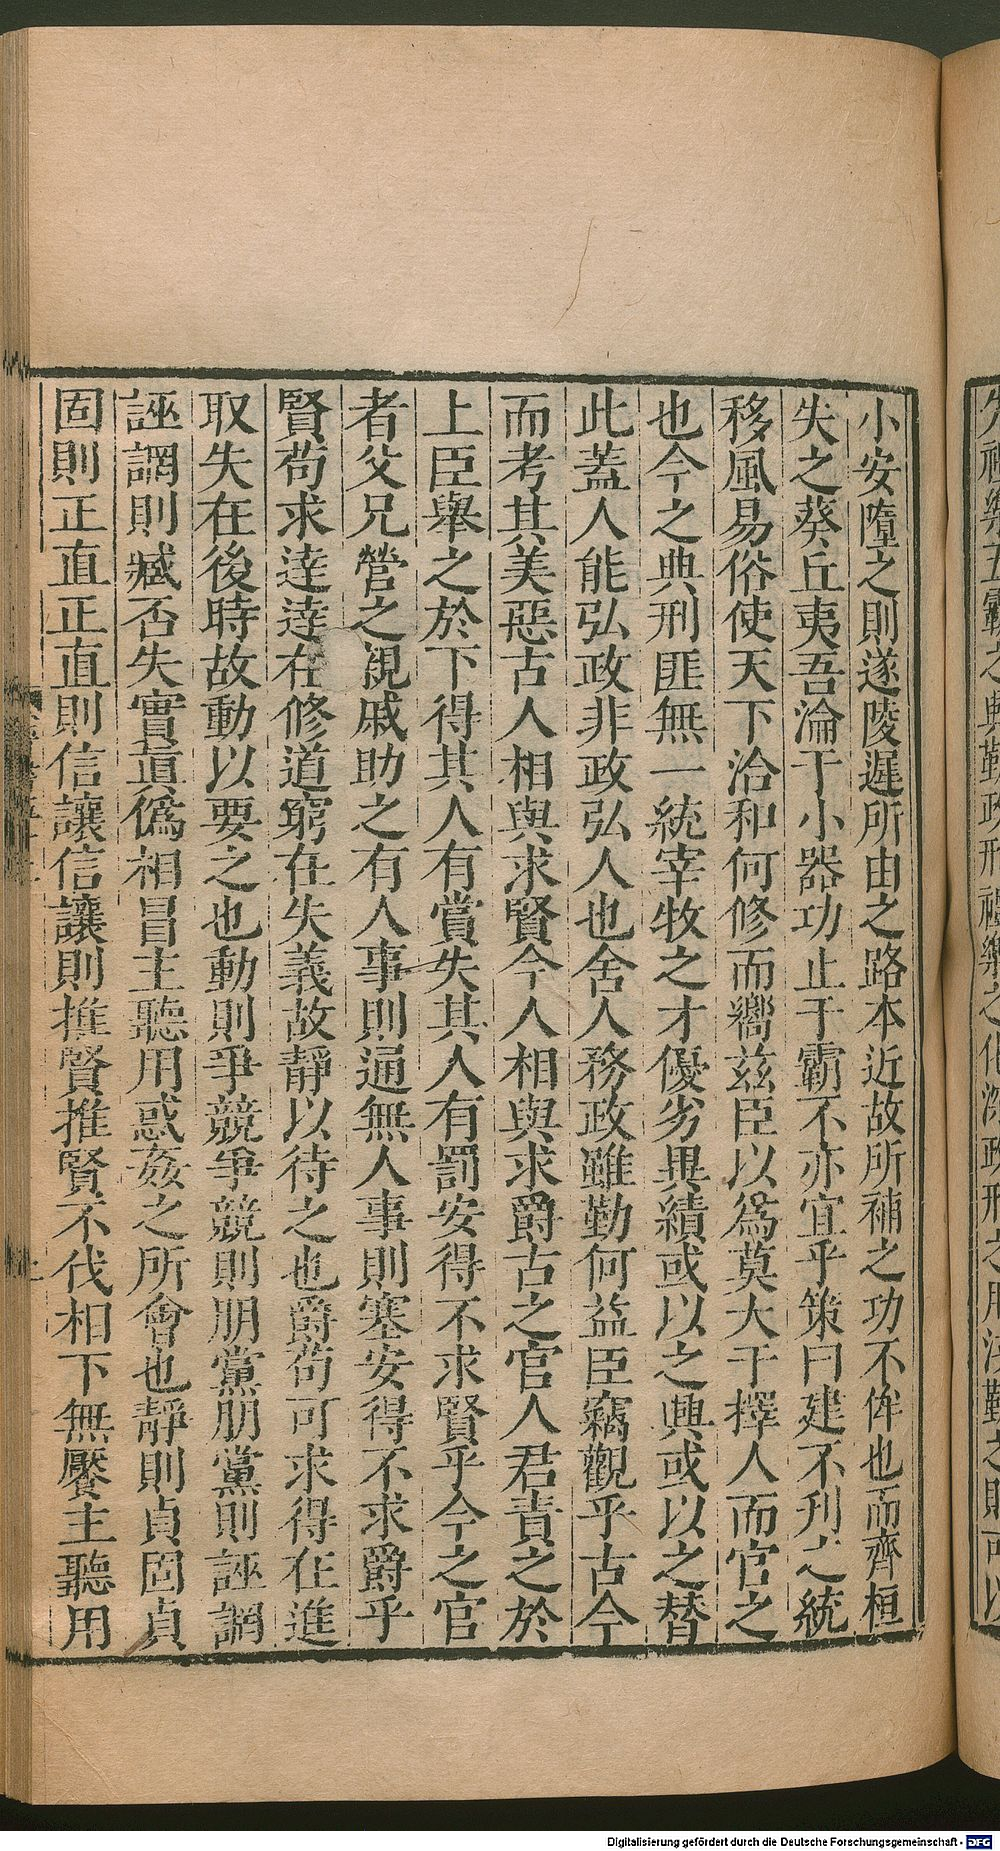 小安墮之則遂陵遲所由之路本近故所補之功不侔也而齊桓
失之葵丘夷吾淪于小器功止于霸不亦宜乎策曰建不刋之統
移風易俗使天下洽和何修而嚮兹臣以爲莫大于擇人而官之
也今之典刑匪無一統宰牧之才優劣異績或以之興或以之替
此蓋人能弘政非政弘人也舍人務政雖勤何益臣竊觀乎古今
而考其美惡古人相與求賢今人相與求爵古之官人君責之於
上臣舉之於下得其人有賞失其人有罰安得不求賢乎今之官
者父兄營之親戚助之有人事則通無人事則塞安得不求爵乎
賢苟求達達在修道窮在失義故靜以待之也爵苟可求得在進
取失在後時故動以要之也動則爭競爭競則朋黨朋黨則誣謂
誣謂則臧否失實眞僞相冒主聽用惑姦之所會也靜則貞固貞
固則正直正直則信讓信讓則推賢推賢不伐相下無饜主聽用
Digitalisierung gefördert durch die Deutsche Forschungsgemeinschaft - DFG